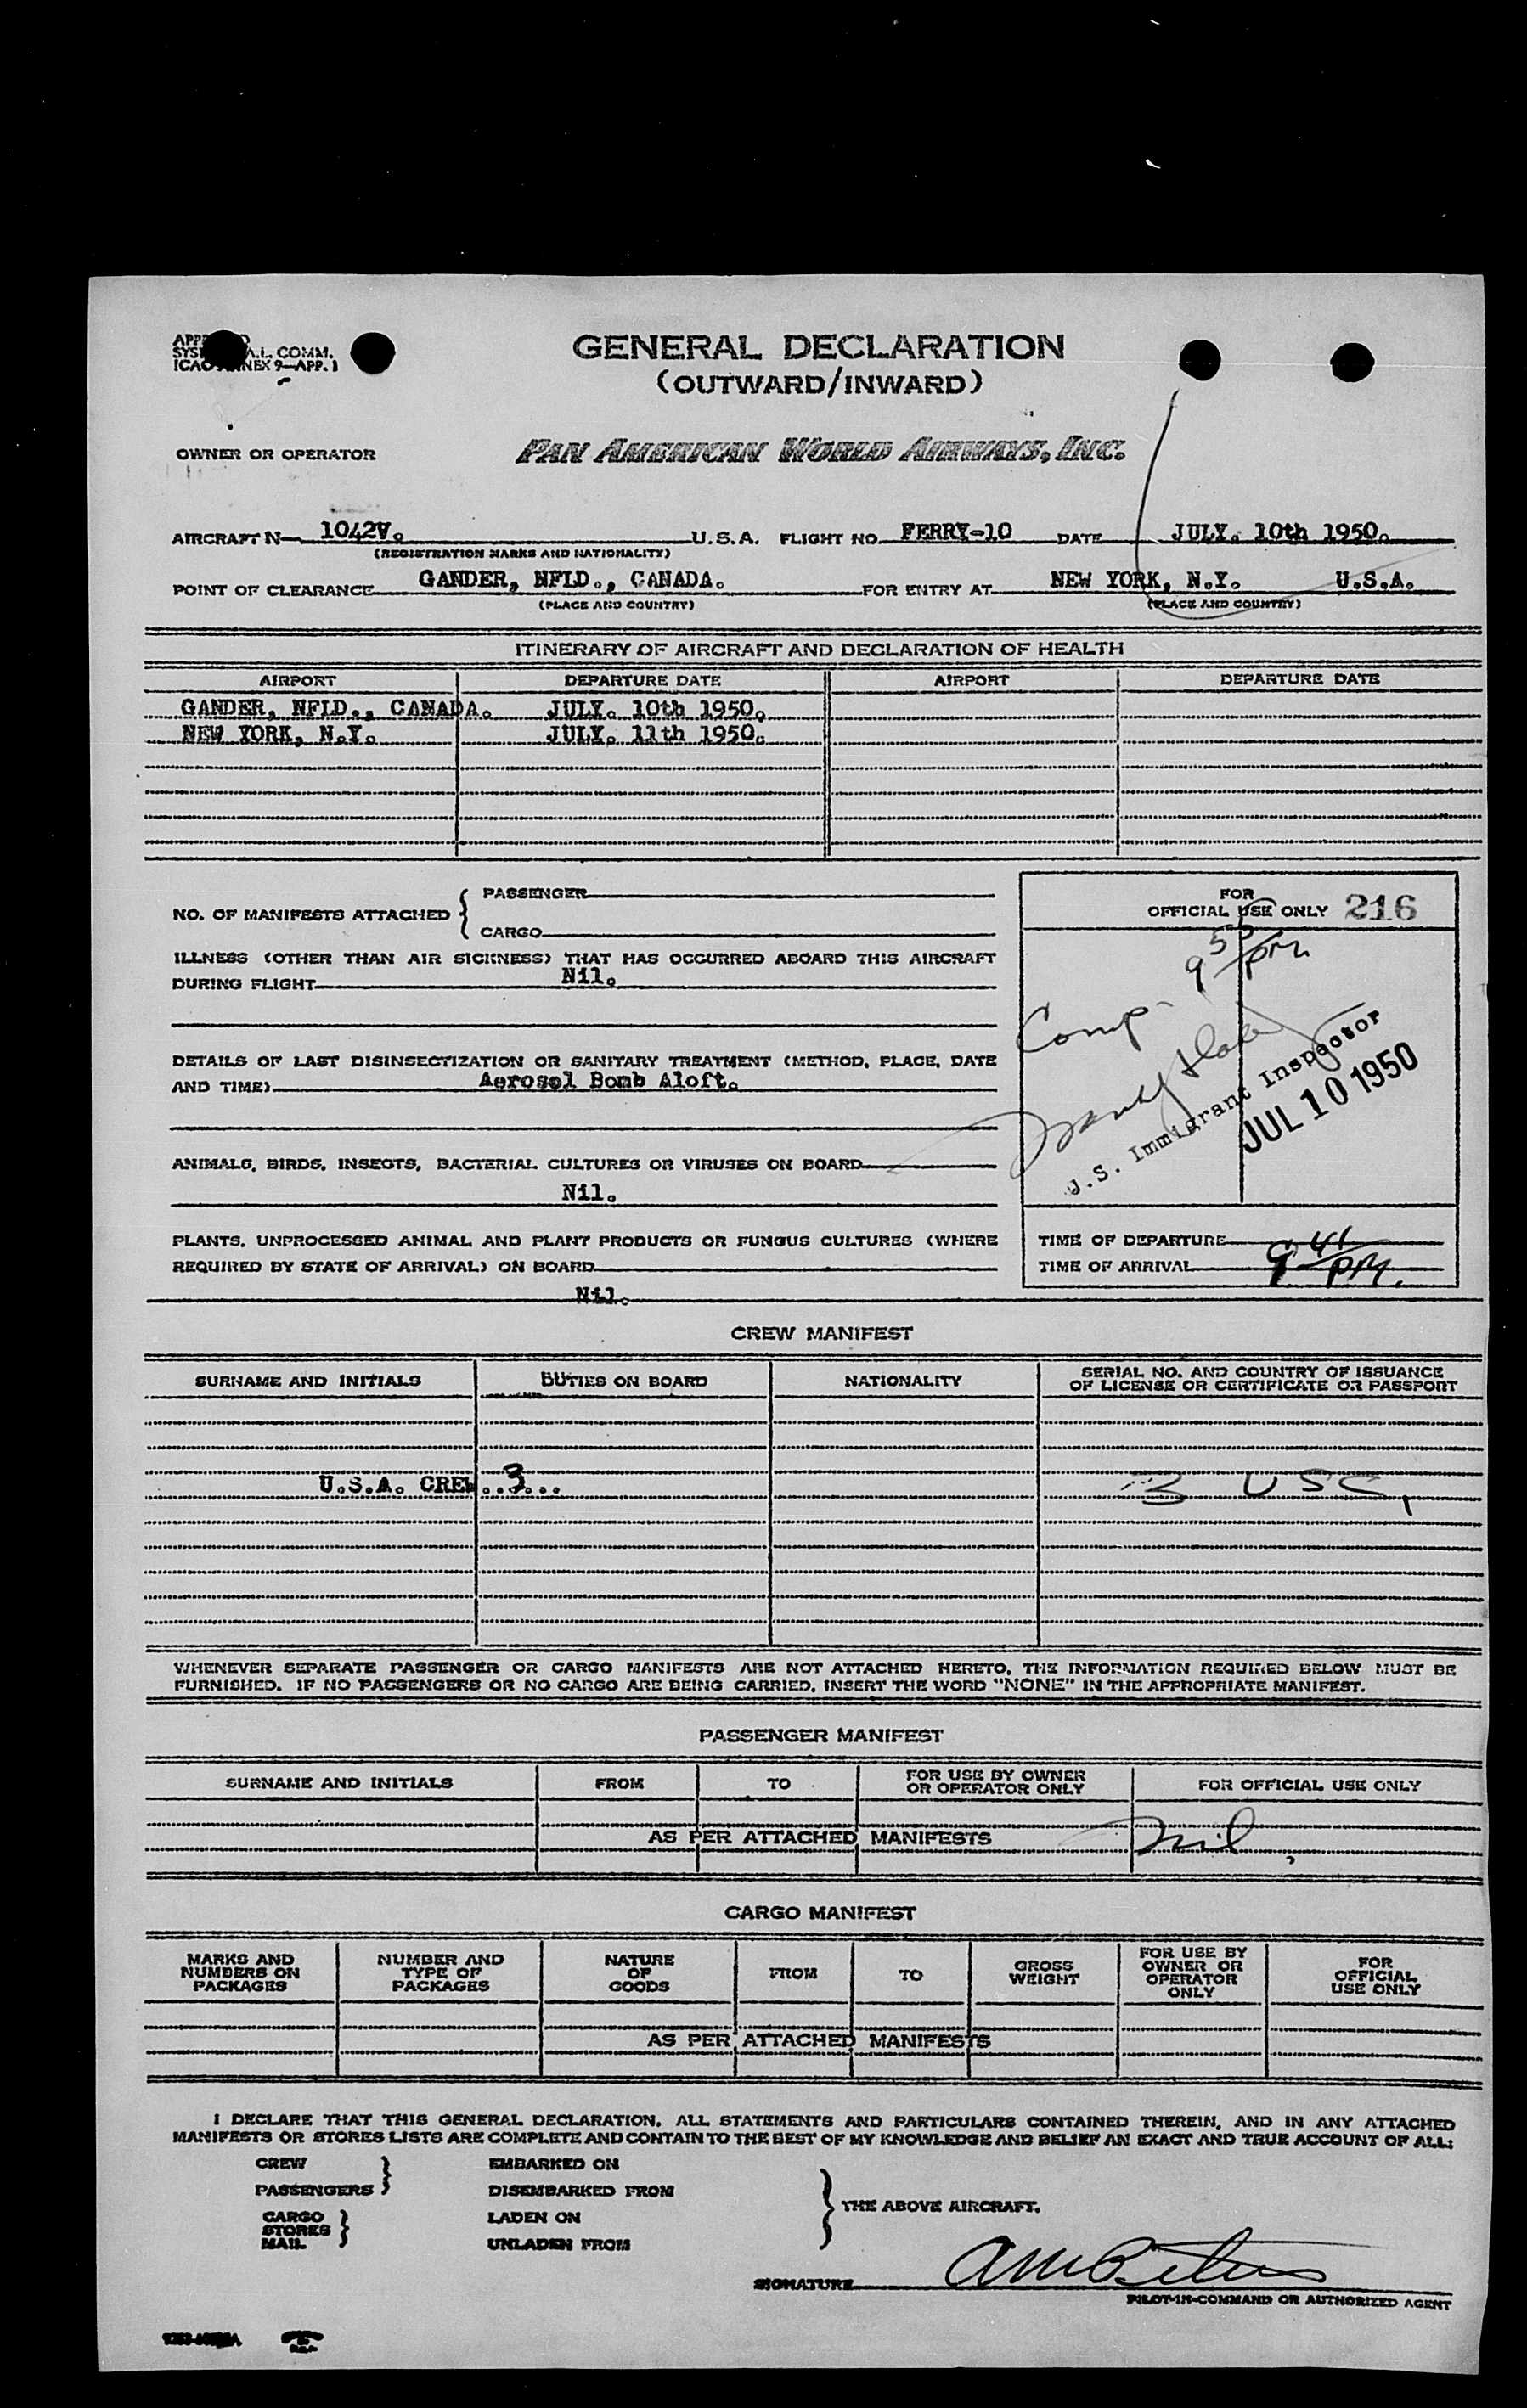 GENERAL DECLARATION
(OUTWARD/INWARD)
A.L. COMM.
ICAO ANNEX 9—APP. 1
OWNER OR OPERATOR PAN AMERICAN WORLD AIRWAYS, INC.
AIRCRAFT N— 1042V. U.S.A. FLIGHT NO. FERRY-10 DATE JULY. 10th 1950.
(REGISTRATION MARKS AND NATIONALITY)
POINT OF CLEARANCE GANDER, NFLD., CANADA. FOR ENTRY AT NEW YORK, N.Y. U.S.A.
(PLACE AND COUNTRY) (PLACE AND COUNTRY)
ITINERARY OF AIRCRAFT AND DECLARATION OF HEALTH
AIRPORT DEPARTURE DATE AIRPORT DEPARTURE DATE
GANDER, NFLD., CANADA. JULY. 10th 1950.
NEW YORK, N.Y. JULY. 11th 1950.
NO. OF MANIFESTS ATTACHED { PASSENGER
CARGO
ILLNESS (OTHER THAN AIR SICKNESS) THAT HAS OCCURRED ABOARD THIS AIRCRAFT
DURING FLIGHT Nil.
DETAILS OF LAST DISINSECTIZATION OR SANITARY TREATMENT (METHOD, PLACE, DATE
AND TIME) Aerosol Bomb Aloft.
ANIMALS, BIRDS, INSECTS, BACTERIAL CULTURES OR VIRUSES ON BOARD
Nil.
PLANTS, UNPROCESSED ANIMAL AND PLANT PRODUCTS OR FUNGUS CULTURES (WHERE
REQUIRED BY STATE OF ARRIVAL) ON BOARD
Nil.
FOR
OFFICIAL USE ONLY 216
Comp-
U.S. Immigrant Inspector
JUL 10 1950
TIME OF DEPARTURE
TIME OF ARRIVAL 9 41 PM.
CREW MANIFEST
SURNAME AND INITIALS DUTIES ON BOARD NATIONALITY SERIAL NO. AND COUNTRY OF ISSUANCE
OF LICENSE OR CERTIFICATE OR PASSPORT
U.S.A. CREW..3... 3 USC,
WHENEVER SEPARATE PASSENGER OR CARGO MANIFESTS ARE NOT ATTACHED HERETO, THE INFORMATION REQUIRED BELOW MUST BE
FURNISHED. IF NO PASSENGERS OR NO CARGO ARE BEING CARRIED, INSERT THE WORD "NONE" IN THE APPROPRIATE MANIFEST.
PASSENGER MANIFEST
SURNAME AND INITIALS FROM TO FOR USE BY OWNER
OR OPERATOR ONLY FOR OFFICIAL USE ONLY
AS PER ATTACHED MANIFESTS nil,
CARGO MANIFEST
MARKS AND
NUMBERS ON
PACKAGES
NUMBER AND
TYPE OF
PACKAGES
NATURE
OF
GOODS
FROM
TO
GROSS
WEIGHT
FOR USE BY
OWNER OR
OPERATOR
ONLY
FOR
OFFICIAL
USE ONLY
AS PER ATTACHED MANIFESTS
I DECLARE THAT THIS GENERAL DECLARATION, ALL STATEMENTS AND PARTICULARS CONTAINED THEREIN, AND IN ANY ATTACHED
MANIFESTS OR STORES LISTS ARE COMPLETE AND CONTAIN TO THE BEST OF MY KNOWLEDGE AND BELIEF AN EXACT AND TRUE ACCOUNT OF ALL:
CREW EMBARKED ON
PASSENGERS } DISEMBARKED FROM
CARGO LADEN ON
STORES }
MAIL UNLADEN FROM
} THE ABOVE AIRCRAFT.
SIGNATURE
PILOT-IN-COMMAND OR AUTHORIZED AGENT